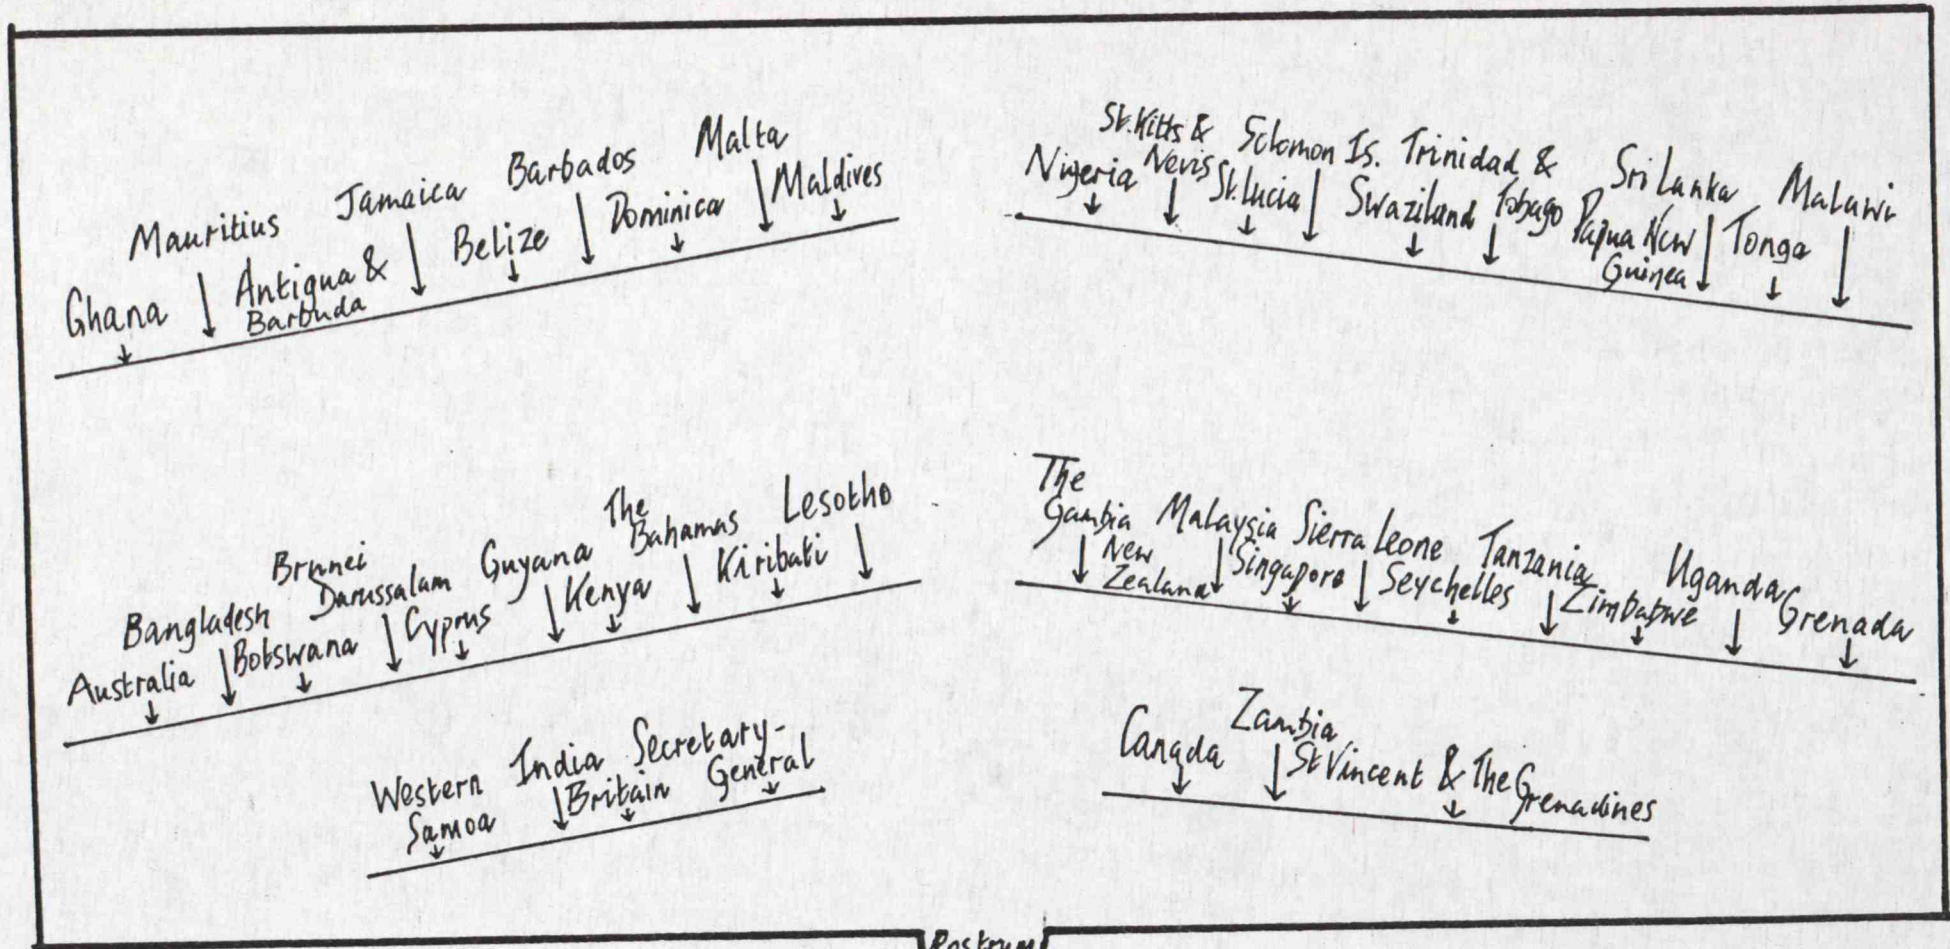 Ghana
Mauritius
Antigua &
Barbuda
Jamaica
Belize
Barbados
Dominica
Malta
Maldives
Nigeria
St. Kitts &
Nevis
St. Lucia
Solomon Is.
Swaziland
Trinidad &
Tobago
Papua New
Guinea
Sri Lanka
Tonga
Malawi
Australia
Bangladesh
Botswana
Brunei
Darussalam
Cyprus
Guyana
Kenya
The
Bahamas
Kiribati
Lesotho
The
Gambia
New
Zealand
Malaysia
Singapore
Sierra Leone
Seychelles
Tanzania
Zimbabwe
Uganda
Grenada
Western
Samoa
India
Britain
Secretary-
General
Canada
Zambia
St Vincent & The Grenadines
Rostrum